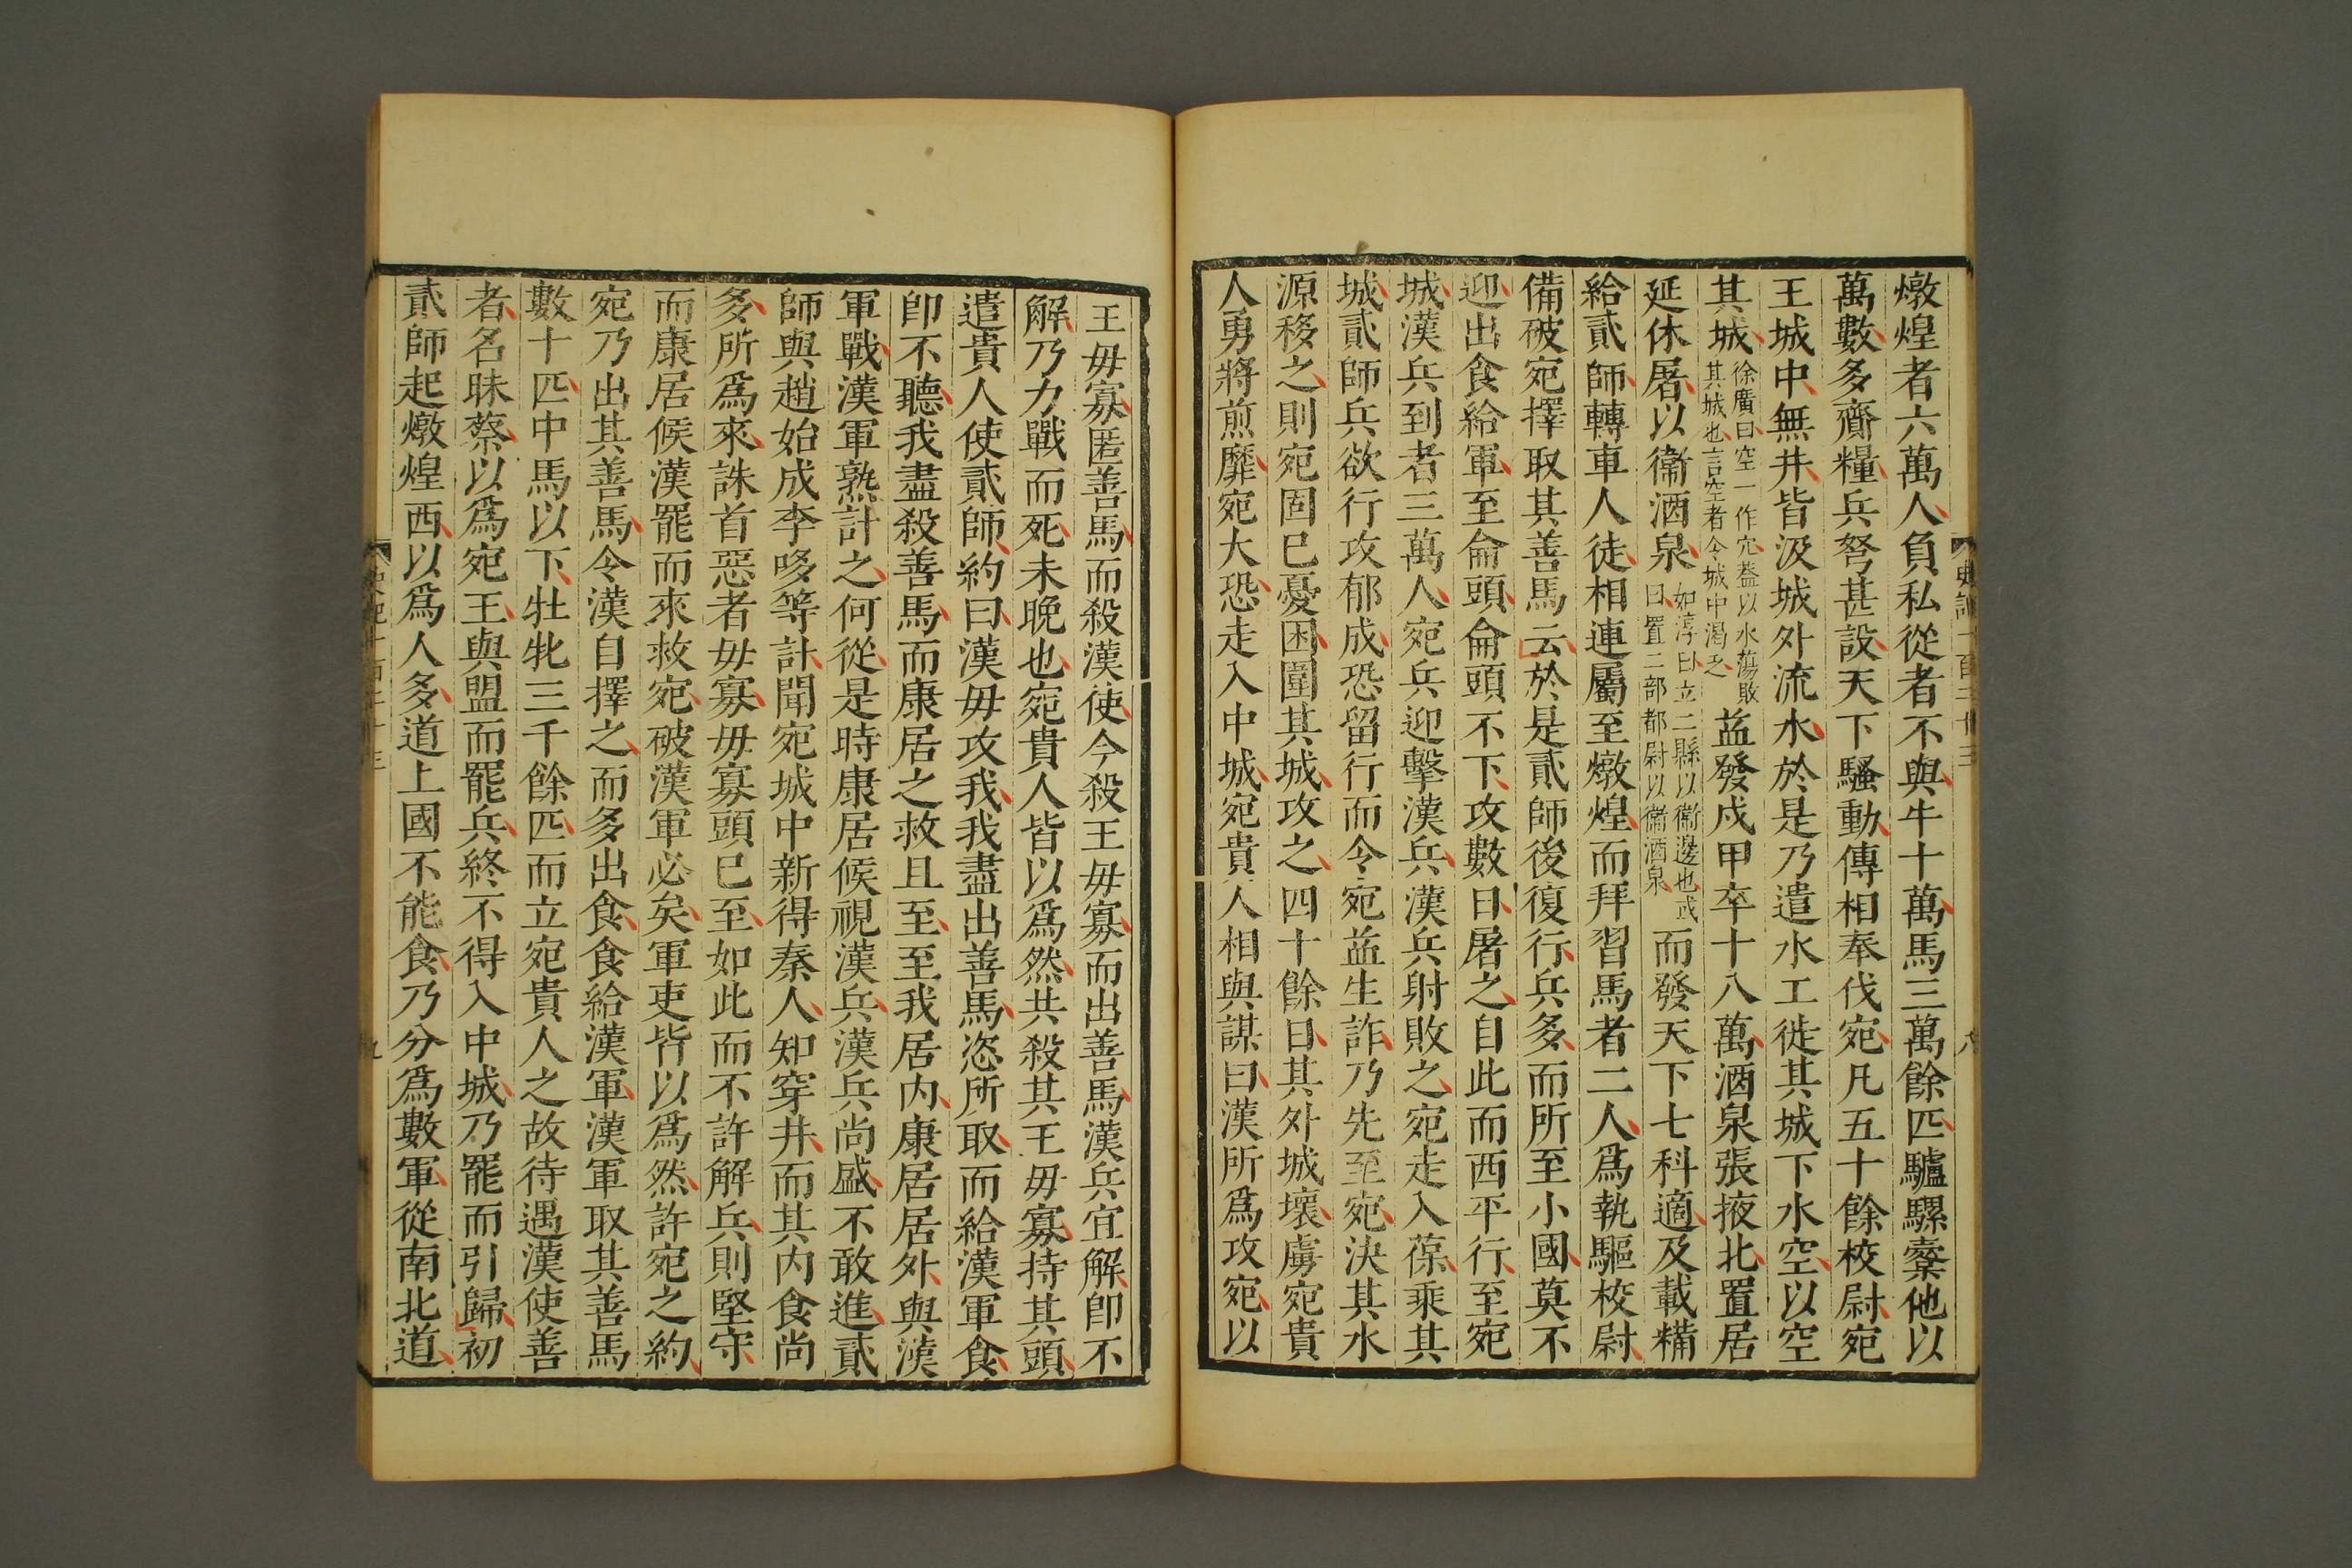 燉煌者六萬人負私從者不與牛十萬馬三萬餘匹驢騾橐他以
萬數多齎糧兵弩甚設天下騷動傳相奉伐宛凡五十餘校尉宛
王城中無井皆汲城外流水於是乃遣水工徙其城下水空以空
其城徐廣曰空一作穴蓋以水蕩敗其城也言空者令城中渴乏益發戍甲卒十八萬酒泉張掖北置居
延休屠以衞酒泉如淳曰立二縣以衞邊也或曰置二部都尉以衞酒泉而發天下七科適及載糒
給貳師轉車人徒相連屬至燉煌而拜習馬者二人爲執驅校尉
備破宛擇取其善馬云於是貳師後復行兵多而所至小國莫不
迎出食給軍至侖頭侖頭不下攻數日屠之自此而西平行至宛
城漢兵到者三萬人宛兵迎擊漢兵漢兵射敗之宛走入葆乘其
城貳師兵欲行攻郁成恐留行而令宛益生詐乃先至宛決其水
源移之則宛固已憂困圍其城攻之四十餘日其外城壞虜宛貴
人勇將煎靡宛大恐走入中城宛貴人相與謀曰漢所爲攻宛以
史記一百二十三
八
王毋寡匿善馬而殺漢使今殺王毋寡而出善馬漢兵宜解卽不
解乃力戰而死未晚也宛貴人皆以爲然共殺其王毋寡持其頭
遣貴人使貳師約曰漢毋攻我我盡出善馬恣所取而給漢軍食
卽不聽我盡殺善馬而康居之救且至至我居内康居居外與漢
軍戰漢軍熟計之何從是時康居候視漢兵漢兵尚盛不敢進貳
師與趙始成李哆等計聞宛城中新得秦人知穿井而其内食尚
多所爲來誅首惡者毋寡毋寡頭已至如此而不許解兵則堅守
而康居候漢罷而來救宛破漢軍必矣軍吏皆以爲然許宛之約
宛乃出其善馬令漢自擇之而多出食食給漢軍漢軍取其善馬
數十匹中馬以下牡牝三千餘匹而立宛貴人之故待遇漢使善
者名昧蔡以爲宛王與盟而罷兵終不得入中城乃罷而引歸初
貳師起燉煌西以爲人多道上國不能食乃分爲數軍從南北道